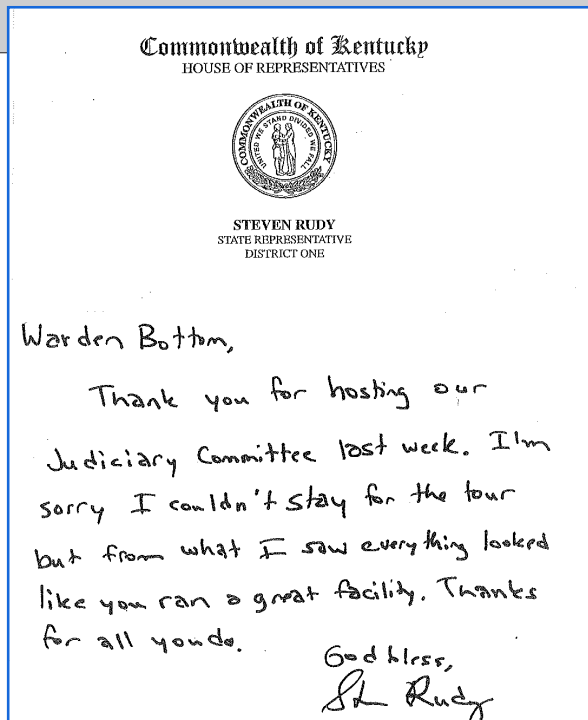 Commonwealth of Kentucky
HOUSE OF REPRESENTATIVES
COMMONWEALTH OF KENTUCKY
UNITED WE STAND DIVIDED WE FALL
STEVEN RUDY
STATE REPRESENTATIVE
DISTRICT ONE
Warden Bottom,
Thank you for hosting our
Judiciary Committee last week. I'm
sorry I couldn't stay for the tour
but from what I saw everything looked
like you ran a great facility. Thanks
for all you do.
God bless,
Steve Rudy